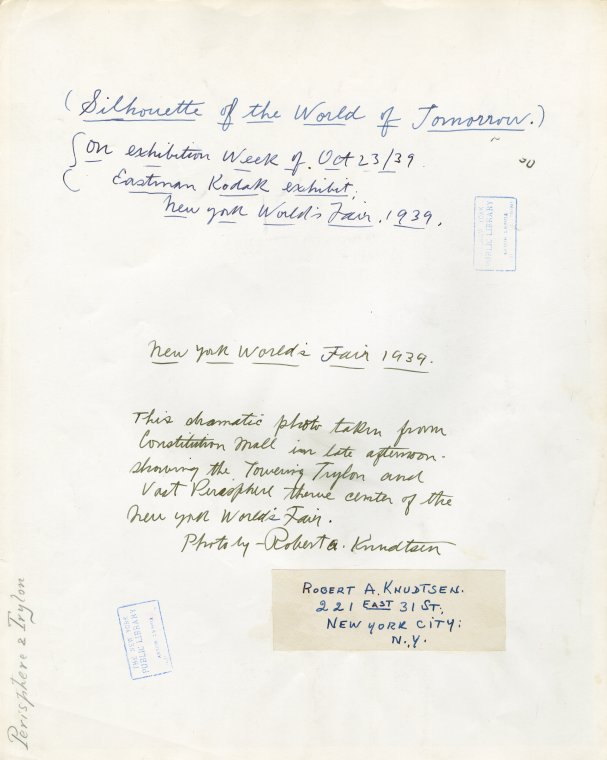 (Silhouette of the World of Tomorrow.)
On exhibition Week of Oct 23/39.
Eastman Kodak exhibit,
New York World's Fair. 1939.
NEW YORK
PUBLIC LIBRARY
New York World's Fair 1939.
This dramatic photo taken from
Constitution Mall in late afternoon.
showing the Towering Trylon and
Vast Perisphere theme center of the
New York World's Fair.
Photo by - Robert A. Knudtsen
ROBERT A. KNUDTSEN.
221 EAST 31 ST.
NEW YORK CITY:
N.Y.
THE NEW YORK
PUBLIC LIBRARY
Perisphere & Trylon